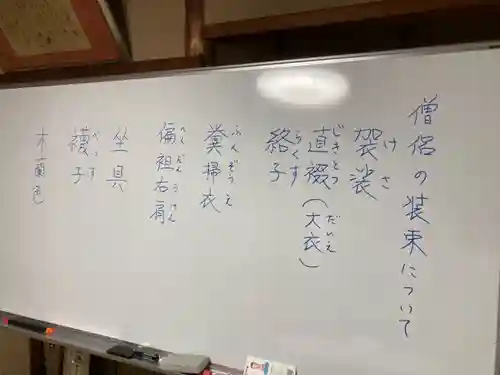 僧侶の装束について
袈裟
けさ
直裰（大衣）
じきとつ
だいえ
絡子
らくす
糞掃衣
ふんぞうえ
偏袒右肩
へんだんうけん
坐具
襪子
べっす
木蘭色